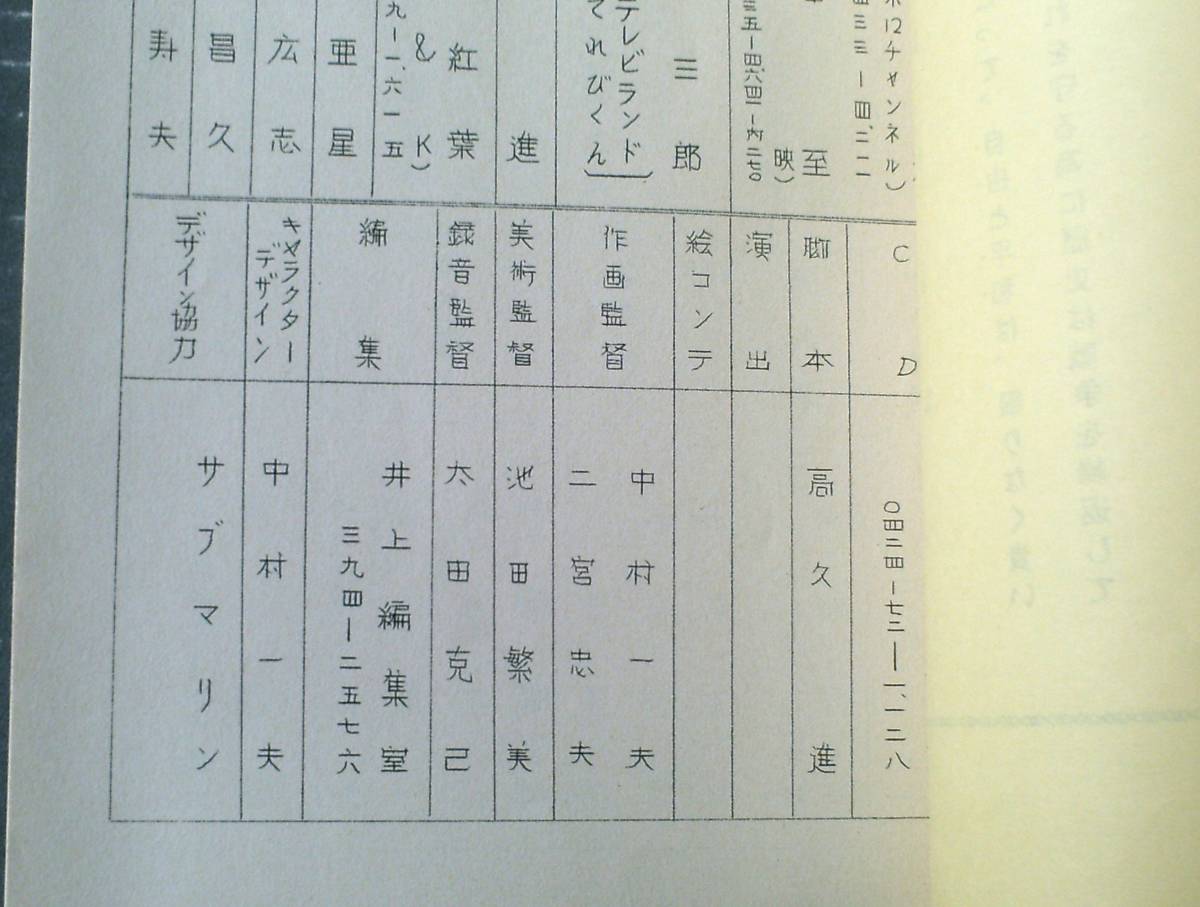 12チャンネル)
四三三ー四、二一一
至
映)
三郎
テレビランド
てれびくん)
進
紅葉
& K)
九ー一、六一五
亜星
広志
昌久
寿夫
CD
〇四二四ー七三ー一、一二八
脚本
高久進
演出
絵コンテ
作画監督
中村一夫
二宮忠夫
美術監督
池田繁美
録音監督
太田克己
編集
井上編集室
三九四ー二五七六
キャラクター
デザイン
中村一夫
デザイン協力
サブマリン